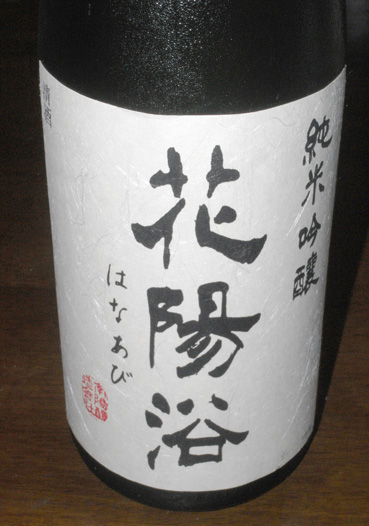 純米吟醸
花陽浴
はなあび
清酒